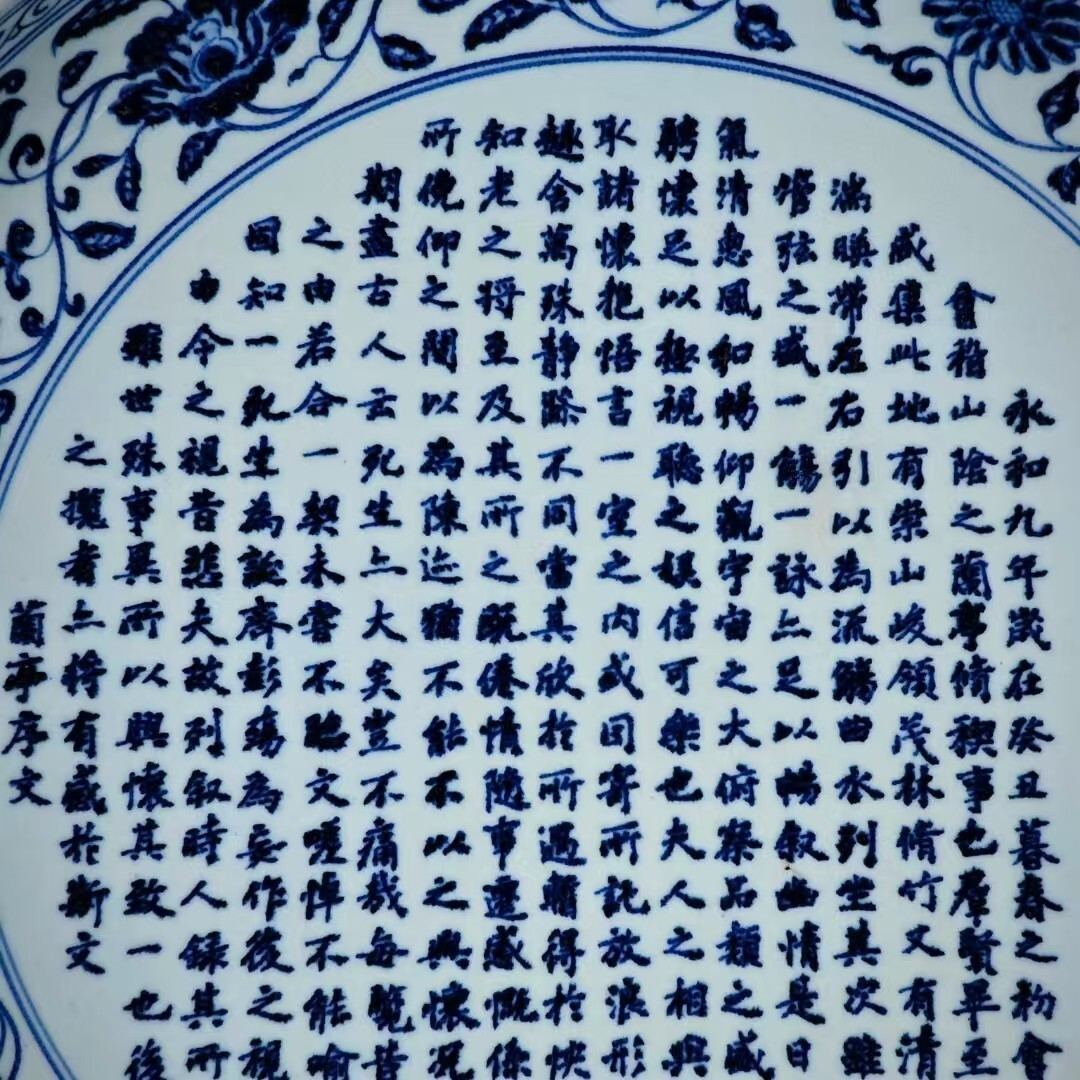 永和九年歲在癸丑暮春之初會
會稽山陰之蘭亭脩禊事也羣賢畢至
咸集此地有崇山峻領茂林脩竹又有清
湍暎帶左右引以為流觴曲水列坐其次雖
管弦之盛一觴一詠亦足以暢叙幽情是日
氣清惠風和暢仰觀宇宙之大俯察品類之盛
騁懷足以極視聽之娛信可樂也夫人之相與
取諸懷抱悟言一室之內或因寄所託放浪形
趣舍萬殊靜躁不同當其欣於所遇暫得於快
知老之將至及其所之既倦情隨事遷感慨係
所俛仰之間以為陳迹猶不能不以之興懷況
期盡古人云死生亦大矣豈不痛哉每覽昔
之由若合一契未嘗不臨文嗟悼不能喻
固知一死生為誕齊彭殤為妄作後之視
由今之視昔悲夫故列叙時人錄其所
雖世殊事異所以興懷其致一也後
之攬者亦將有感於斯文
蘭亭序文